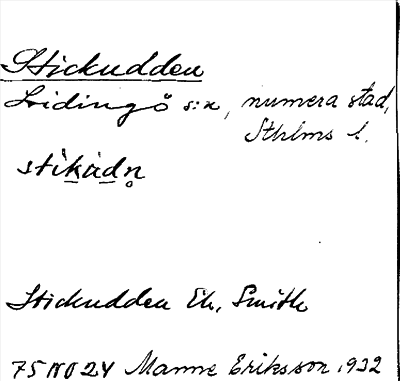 Stickudden
Lidingö s:n, numera stad,
Sthlms l.
stìkàdn̥
Stickudden Ek. Smith
75 NO 24 Manne Eriksson 1932